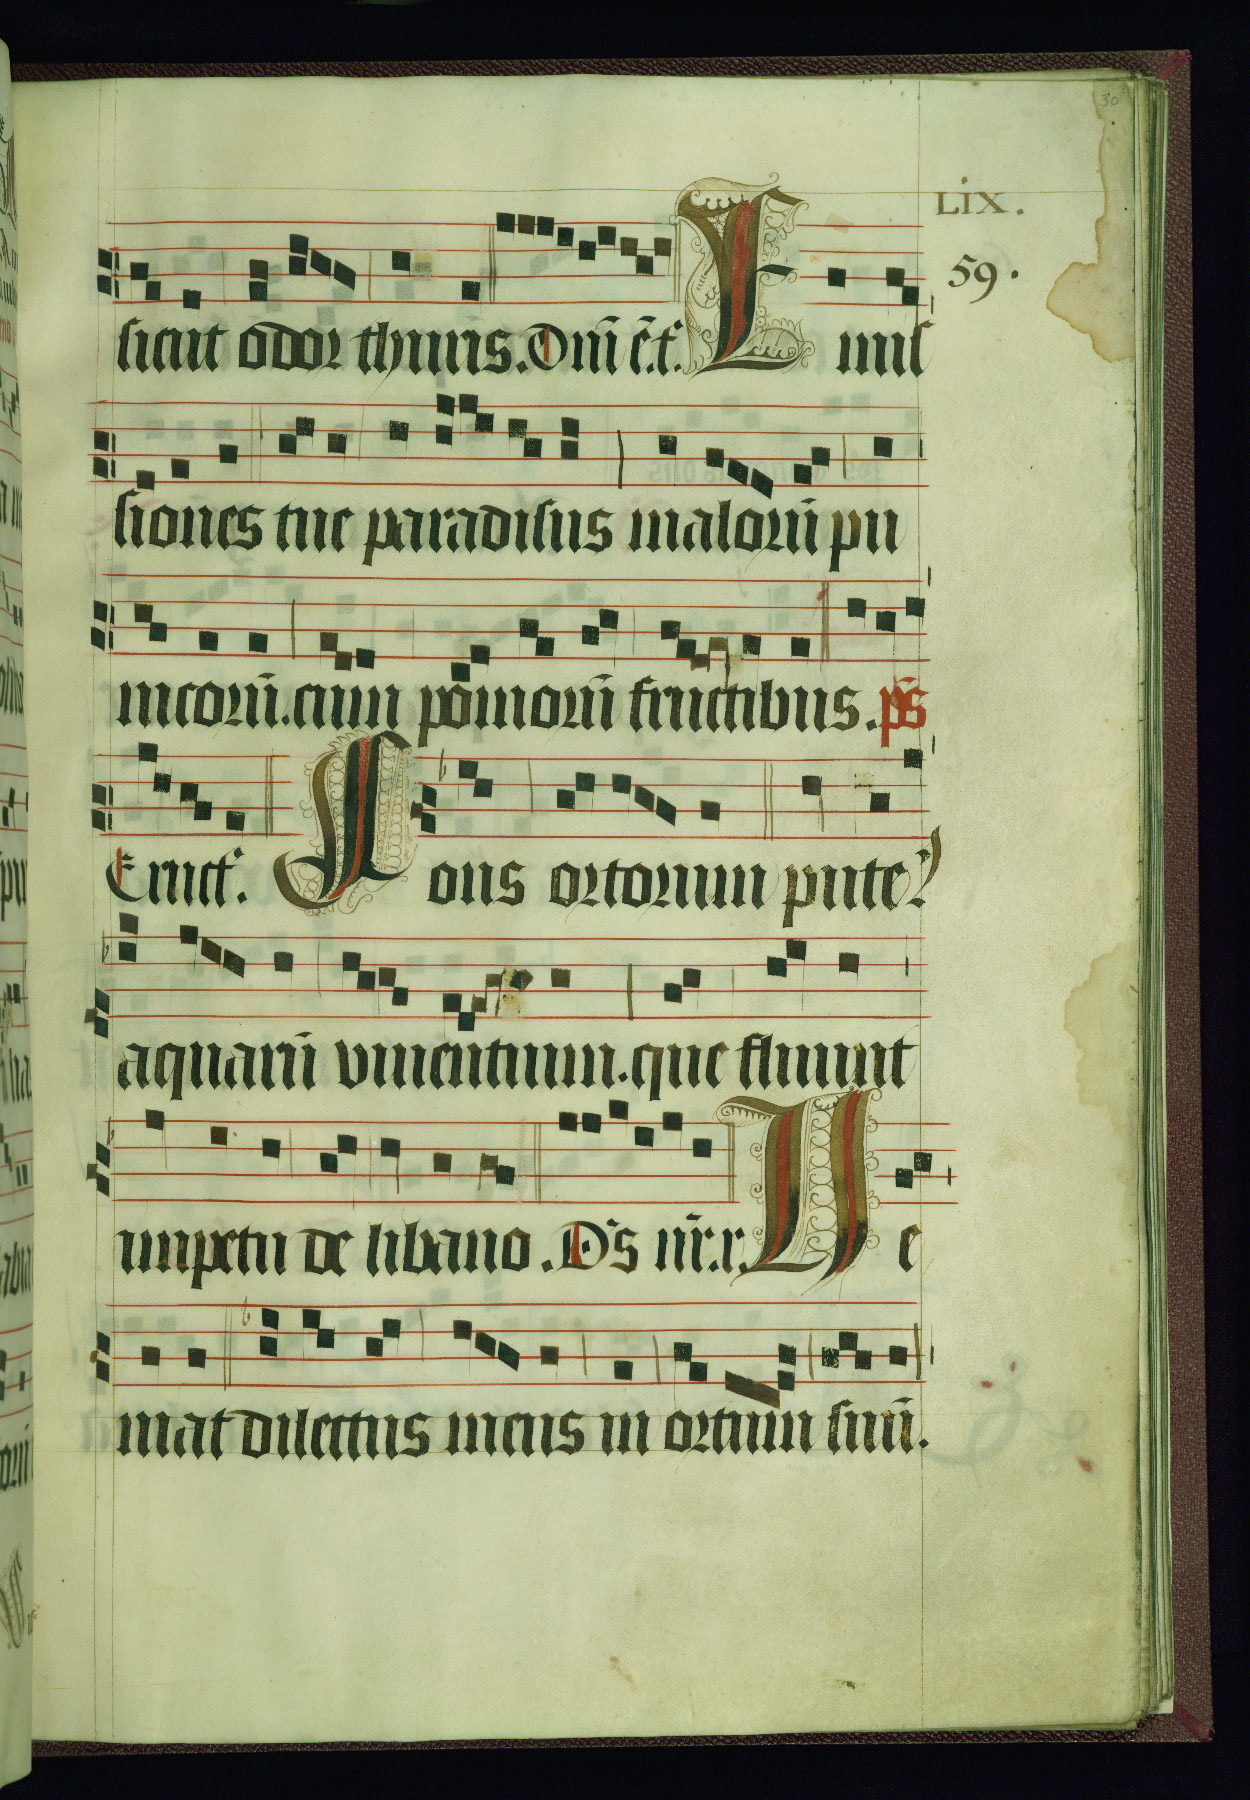 30
LIX.
59.
sicut odor thuris. Dñi ē.t̄. E mis
siones tue paradisus malorū pu
nicorū. cum pomorū fructibus. ps̄
Eruct̄. F ons ortorum pute9
aquarū viventium. que fluunt
impetu de libano. Ds̄ nr̄.r. V e
niat dilectus meus in ortum suū.